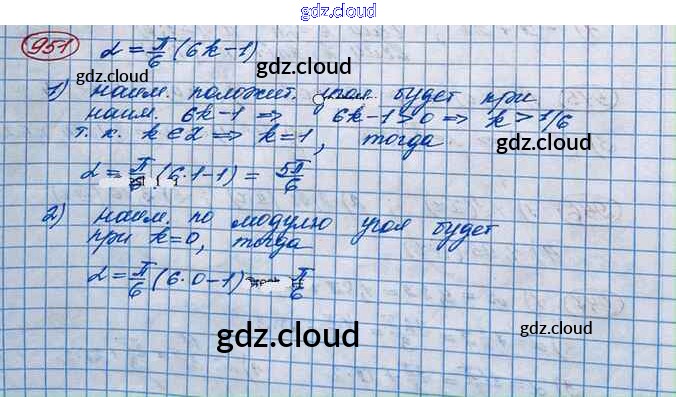 gdz.cloud
951 α = π/6 (6k-1)
gdz.cloud
gdz.cloud
1) наим. положит. угол будет при
наим. 6k-1 ⇒ 6k-1>0 ⇒ k>1/6
т. к. k∈Z ⇒ k=1, тогда
gdz.cloud
gdz.cloud
α = π/6 (6·1-1) = 5π/6
2) наим. по модулю угол будет
при k=0, тогда
gdz.cloud
α = π/6 (6·0-1) π/6
gdz.cloud
gdz.cloud